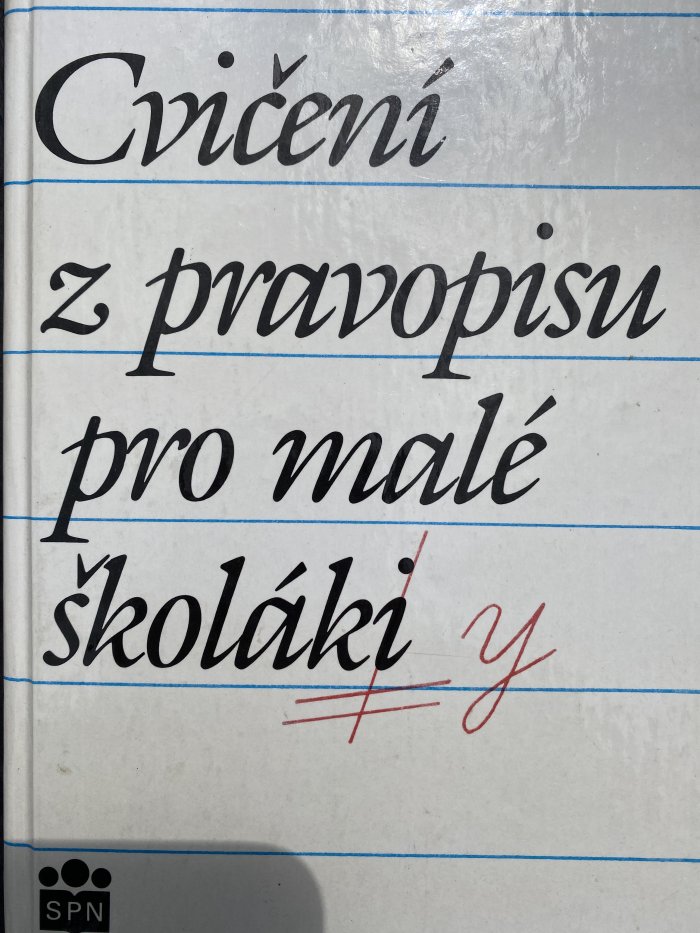 Cvičení
z pravopisu
pro malé
školáki y
SPN